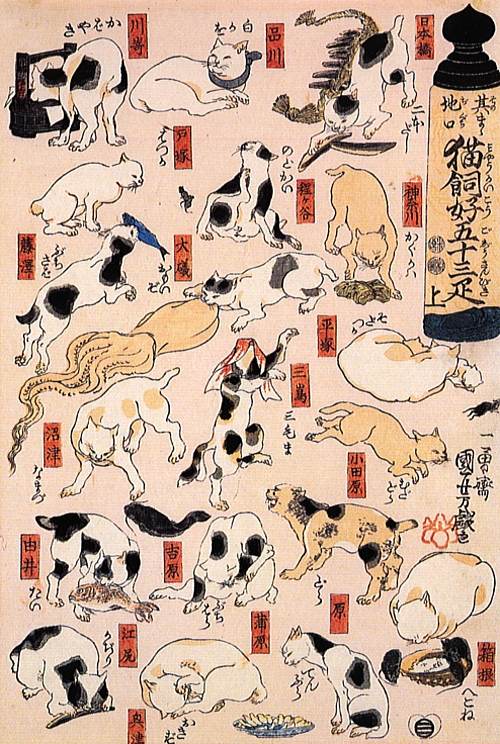 其まゝ
地口
猫飼好五十三疋
上
日本橋
二本だし
品川
白かを
川嵜
かばやき
神奈川
かぐかハ
程ヶ谷
のどかい
戸塚
はつか
平塚
そだつか
大磯
おもいぞ
藤澤
ぶちさば
小田原
むだどら
三嶌
三毛ま
沼津
なまづ
箱根
へこね
原
どら
吉原
ぶちはら
由井
たい
蒲原
てんぷら
江尻
かぢり
奥津
おきず
一勇齋
國芳万戯画